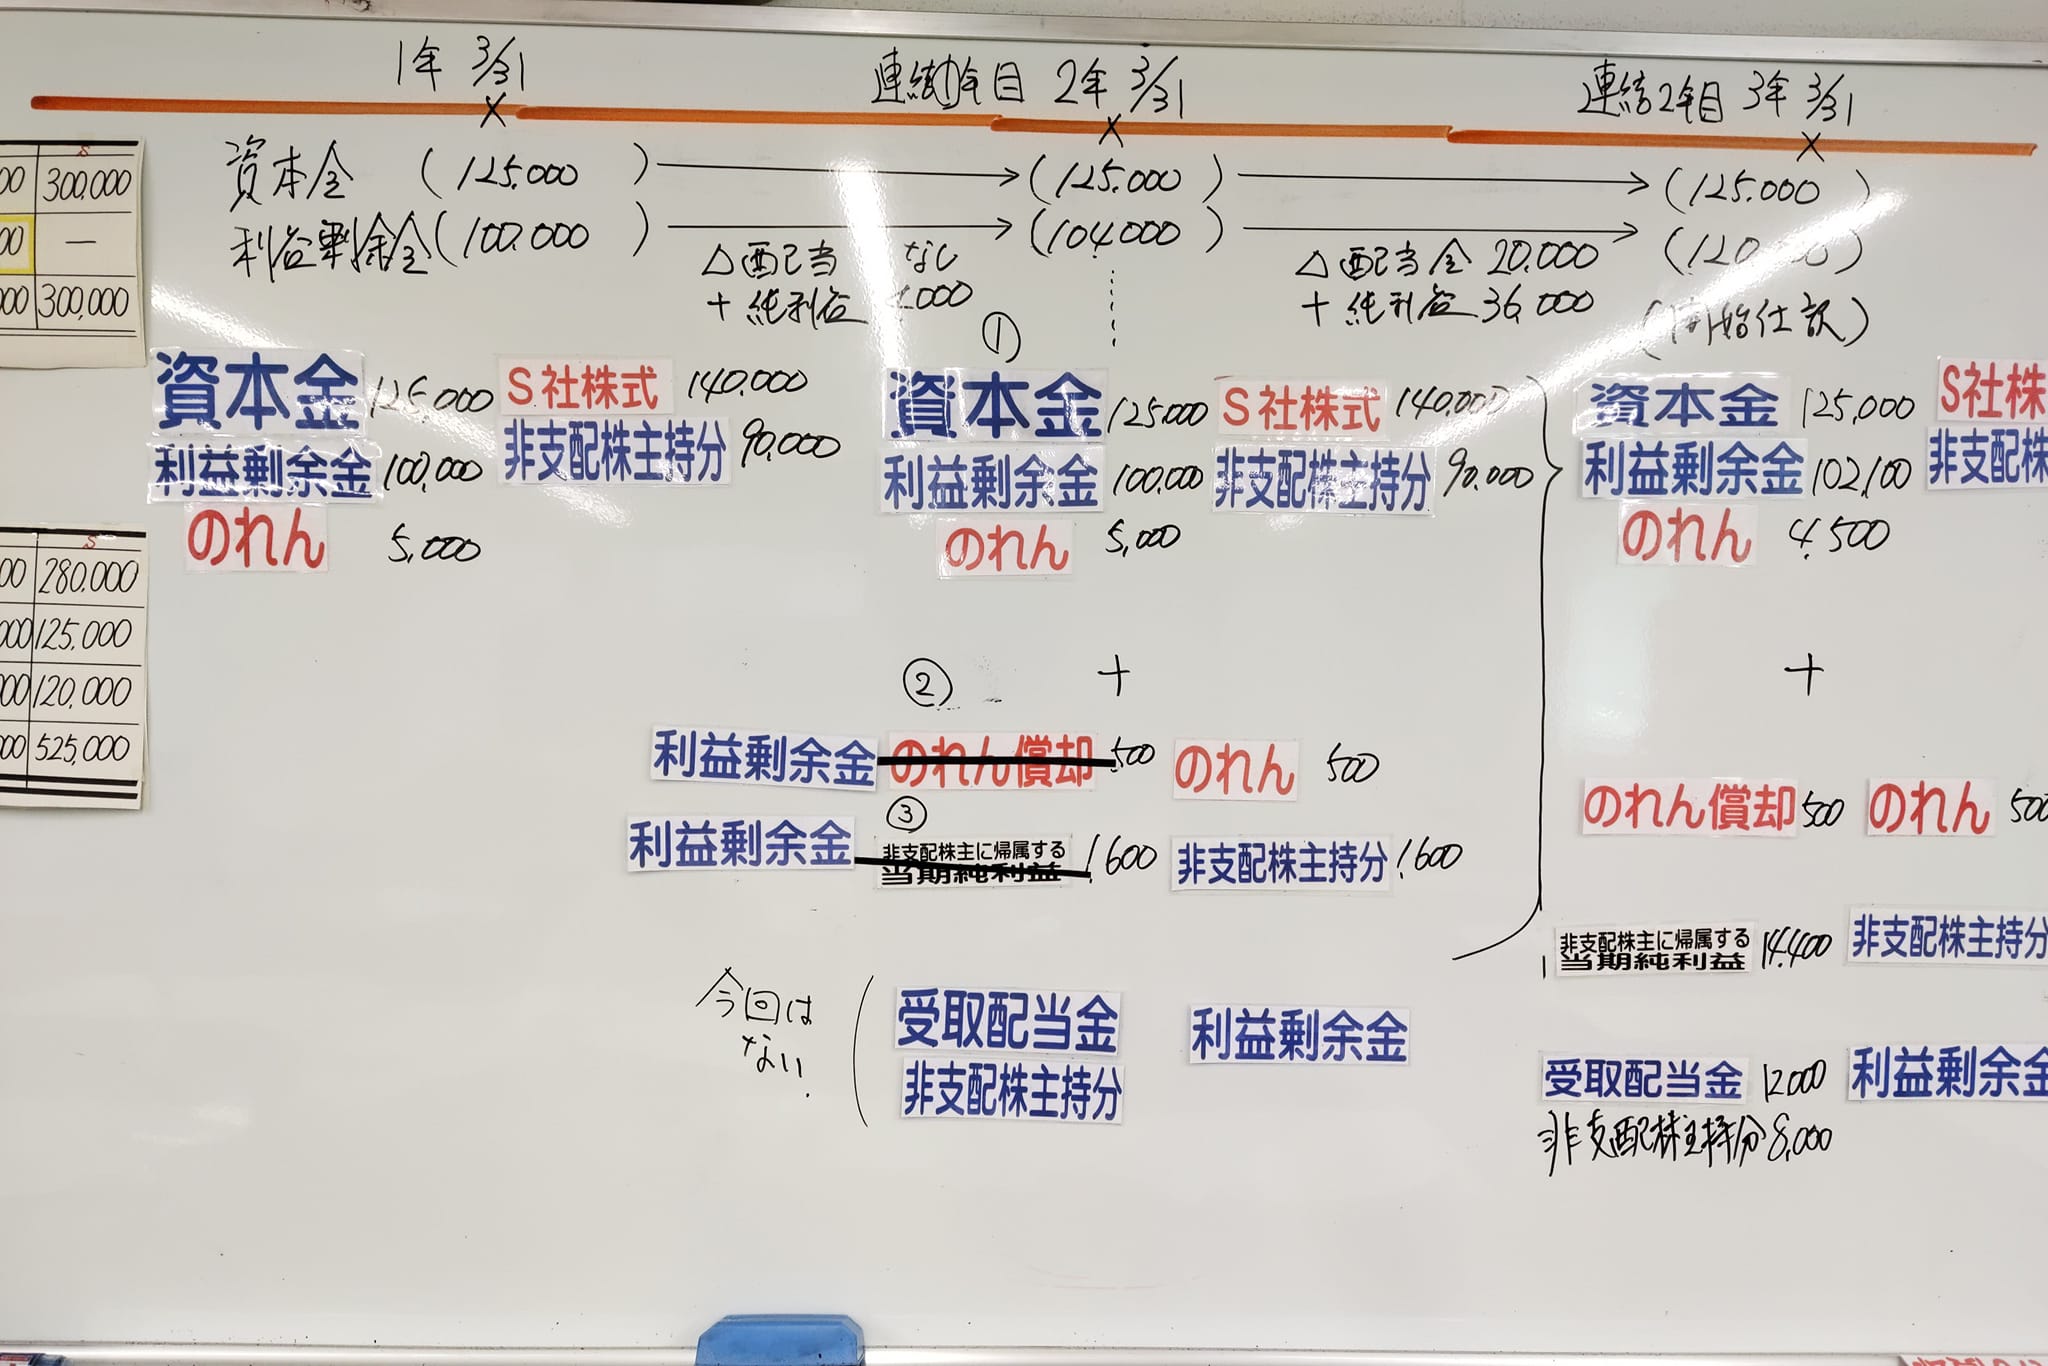 1年 3/31
連結1年目 2年 3/31
連結2年目 3年 3/31
資本金 (125.000) (125.000) (125.000)
利益剰余金 (100.000) (104.000)
△配当 なし
+純利益
△配当金 20.000
+純利益 36,000
(開始仕訳)
S
00 300,000
00 —
000 300,000
S
00 280,000
000 125,000
000 120,000
000 525,000
資本金 125,000 S社株式 140,000
利益剰余金 100,000 非支配株主持分 90,000
のれん 5,000
①
資本金 125,000 S社株式 140,000
利益剰余金 100,000 非支配株主持分 90,000
のれん 5,000
② +
利益剰余金 のれん償却 500 のれん 500
③
利益剰余金 非支配株主に帰属する当期純利益 1,600 非支配株主持分 1,600
今回は
ない.
受取配当金 利益剰余金
非支配株主持分
資本金 125,000 S社株
利益剰余金 102,100 非支配株
のれん 4,500
+
のれん償却 500 のれん 500
非支配株主に帰属する当期純利益 14,400 非支配株主持分
受取配当金 12,000 利益剰余金
非支配株主持分 8,000